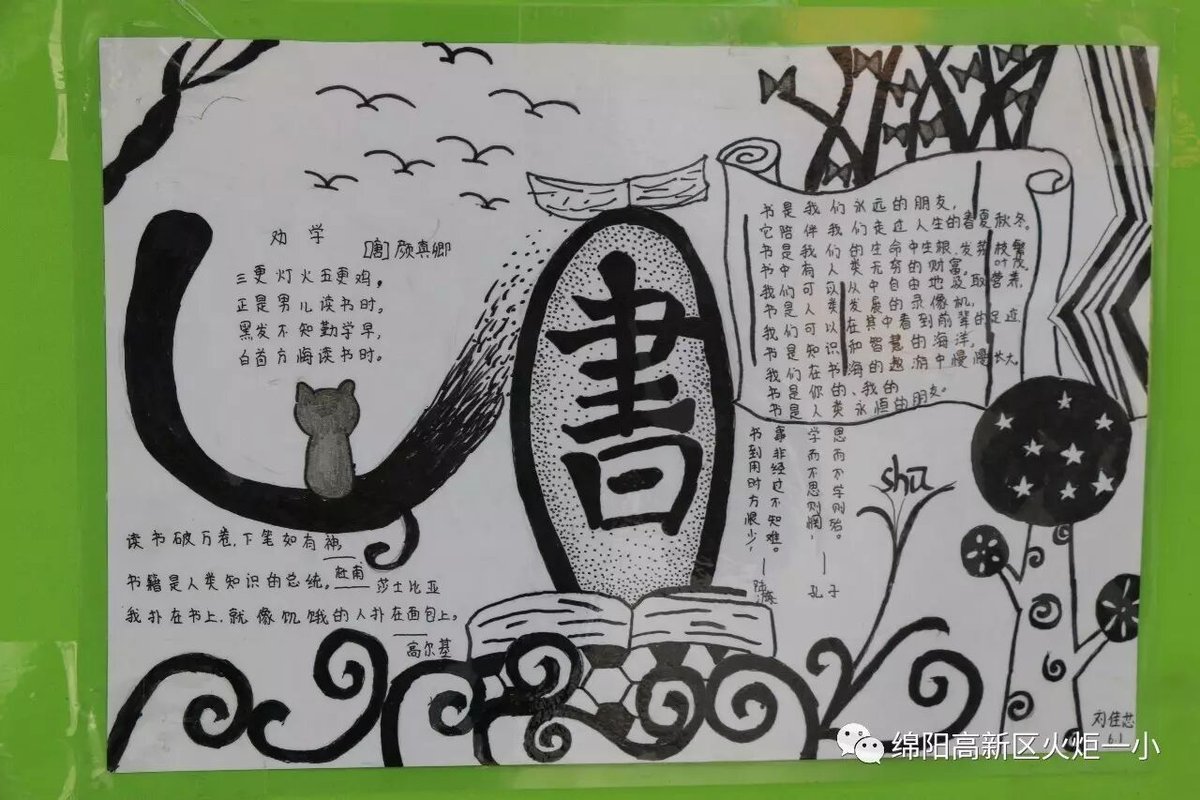 劝学
[唐]颜真卿
三更灯火五更鸡，
正是男儿读书时。
黑发不知勤学早，
白首方悔读书时。
读书破万卷，下笔如有神。
书籍是人类知识的总统。——莎士比亚
我扑在书上，就像饥饿的人扑在面包上。
——高尔基
書
书是我们永远的朋友，
它陪伴我们走过人生的春夏秋冬。
书是我们的生命中生根发芽枝繁叶茂，
书中有人类无穷的财富，
我们可以从中自由地汲取营养，
书是人类发展的录像机，
我们可以在其中看到前辈的足迹，
书是知识和智慧的海洋，
我们在书海的遨游中慢慢长大。
书是你的、我的
书是人类永恒的朋友。
思而不学则殆。
学而不思则惘，
——孔子
事非经过不知难。
书到用时方恨少，
shū
刘佳芯
6.1
绵阳高新区火炬一小